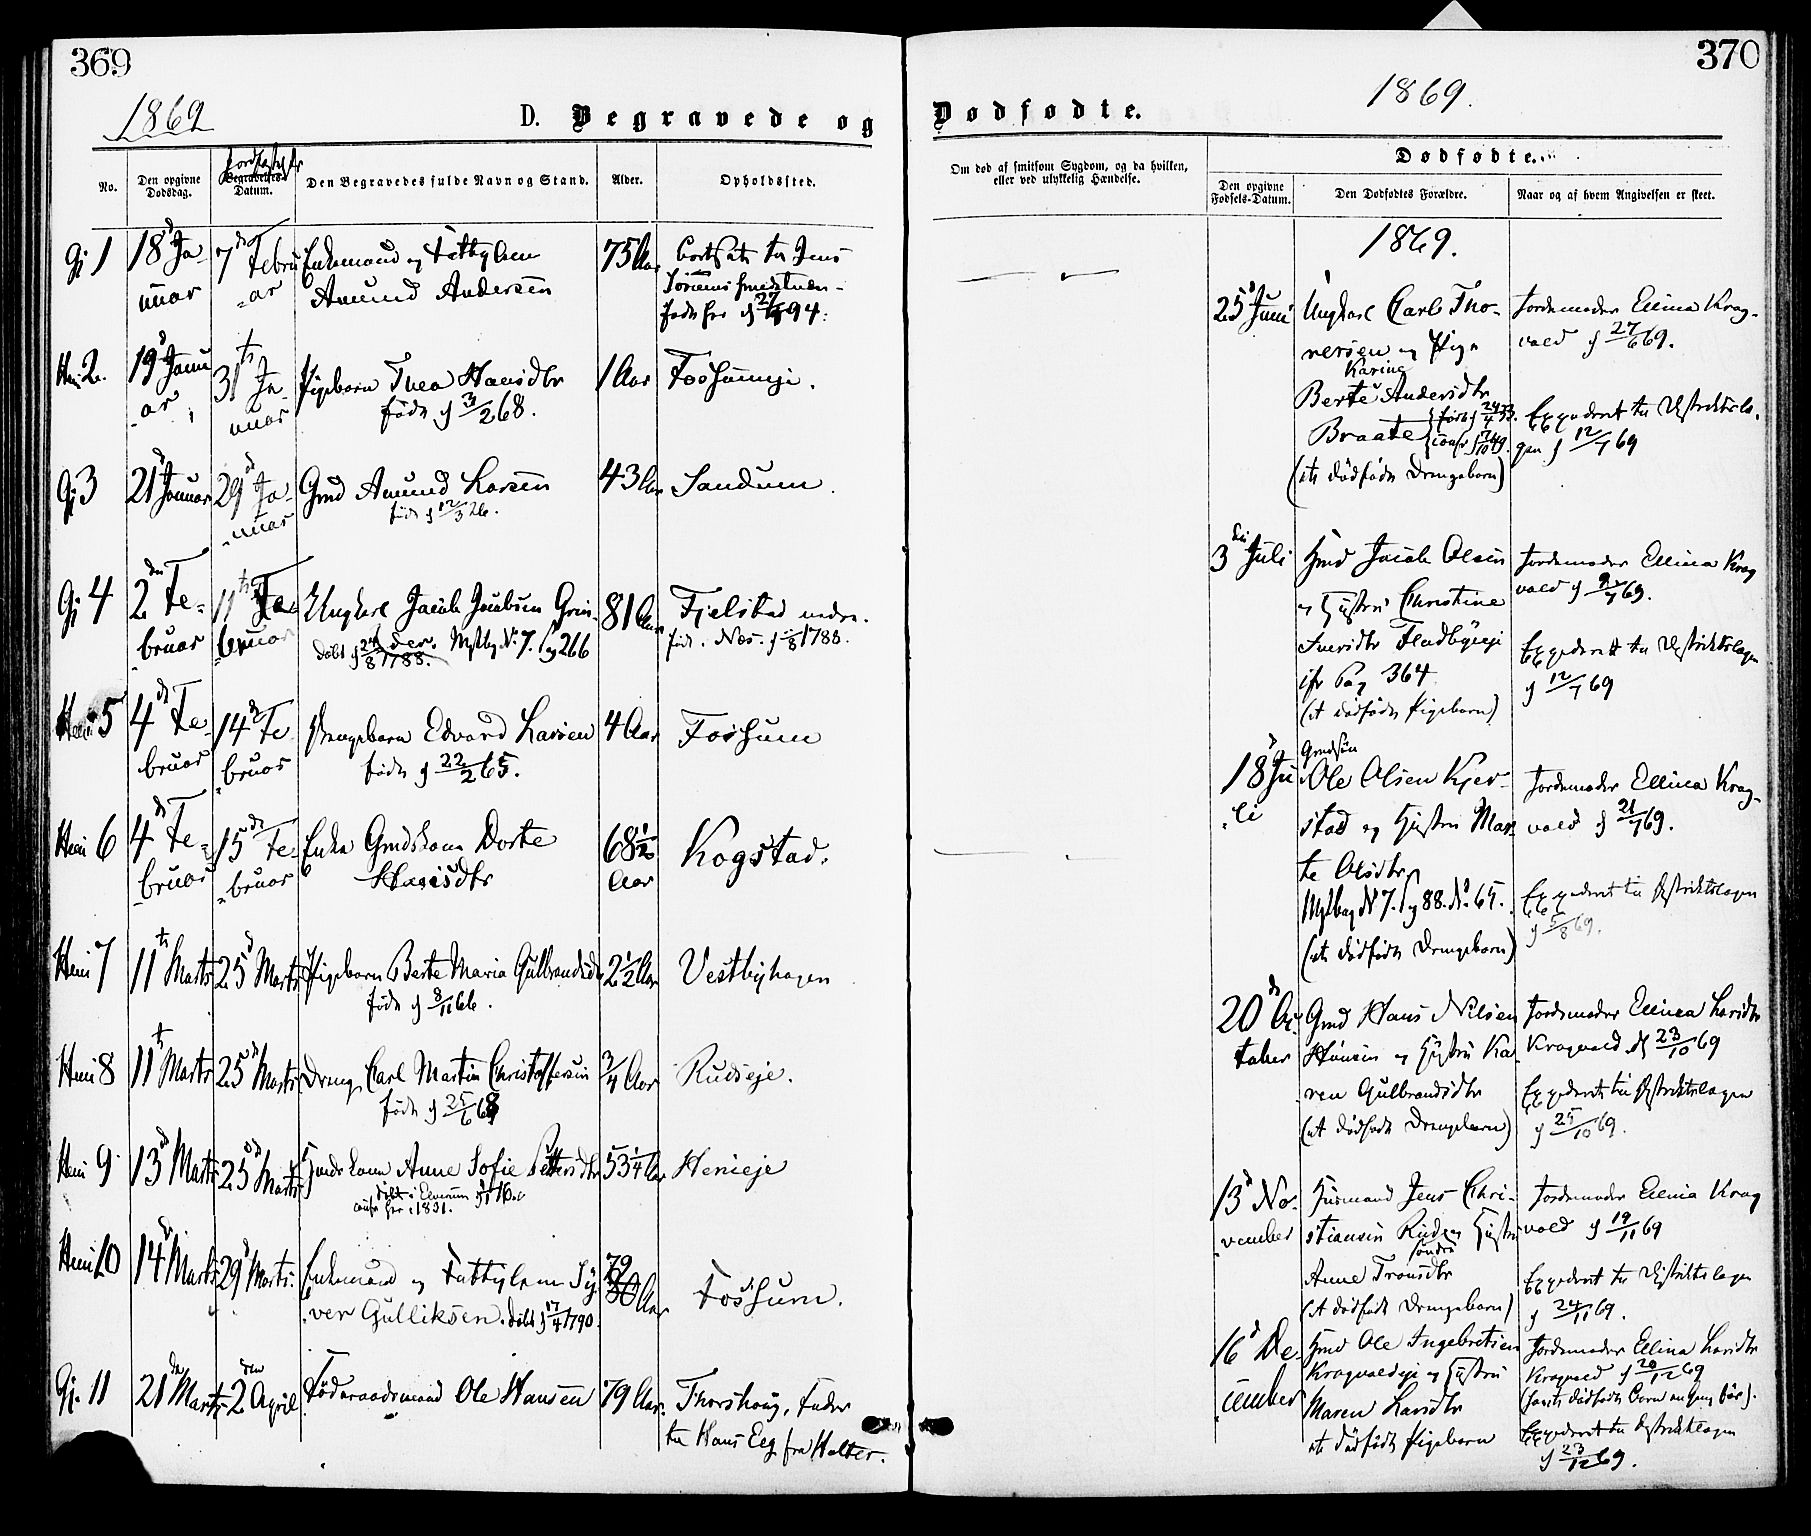 369
1869
D. Begravede og
No.
Den opgivne Dødsdag.
Jordfæstelses
Begravelses-Datum.
Den Begravedes fulde Navn og Stand.
Alder.
Opholdssted.
Gj 1
18d Ja-
nuar
7de Febru
ar
Enkemand og Fattiglem
Amund Andersen
75 Aar
Hem 2.
19d Janu
ar
31te Ja-
nuar
Pigebarn Thea Hansdtr
født d 3/2 68.
1 Aar
Fossumeje.
Gj 3
21d Januar
29d Ja-
nuar
Gmd Amund Larsen
født d 12/3 26.
43 Aar
Sandum
Gj 4
2den Fe-
bruar
11te Fe-
bruar
Ungkarl Jacob Jacobsen Grin-
der. Mstbg No 7. Pag 266
døbt d 24/8 1788.
81 Aar
Fjelstad nedre.
Hem 5
4de Fe-
bruar
14de Fe-
bruar
Drengebarn Edvard Larsen
født d 22/2 65.
4 Aar
Fossum
Hem 6
4de Fe-
bruar
15de Fe-
bruar
Enke Gmdskone Dorte
Hansdtr
68 1/2
Aar
Kogstad.
Hem 7
11te Marts
25d Marts
Pigebarn Berte Maria Gulbrandsdtr
født d 8/11 66.
2 1/2 Aar
Vestbyhagen
Hem 8
11te Marts
25d Marts
Dreng Carl Martin Christoffersen
født d 25/6 68
3/4 Aar
Rudseje.
Hem 9
13d Marts
25d Marts
Gmdskone Anne Sofie Pettersdtr
conf her i 1831.
53 1/4 Aar
Henieje
Hem 10
14d Marts
29d Marts
Enkemand og Fattiglem Sy-
ver Gulliksen. døbt d 17/4 1790.
79
80 Aar
Fossum.
Gj. 11
21de Marts
2den April
Føderaadsmand Ole Hansen
79 Aar.
Thorshoug, Fader
til Hans Eeg fra Holter.
370
1869.
Dødfødte.
Om død af smitsom Sygdom, og da hvilken,
eller ved ulykkelig Hændelse.
Dødfødte.
Den opgivne
Fødsels-Datum.
Den Dødfødtes Forældre.
Naar og af hvem Angivelsen er skeet.
1869.
25d Juni
Ungkarl Carl Tho-
resen og Pige
Karine
Berte Andersdtr
Braate
(et dødfødt Drengebarn)
Jordemoder Elina Krag-
vold d 27/6 69.
Expederet til Distriktslæ-
gen d 12/7 69
3die Juli
Gmd Jacob Olsen
og Hustru Christine
Iversdtr Fladbyeje
jfr Pag 364
(et dødfødt Pigebarn)
Jordemoder Ellina Krag
vold d 9/7 69.
Expederet til Distriktslægen
d 12/7 69
18d Ju-
li
Gmdsøn
Ole Olsen Kjer-
stad og Hustru Mar-
te Olsdtr
Mstbog No 7. Pag 88. No 65.
(et dødfødt Drengebarn)
Jordemoder Ellina Krag-
vold d 21/7 69.
Expederet til Distriktslægen
d 5/8 69.
20de Oc-
tober
Gmd Hans Nilsen
og Hustru Ka-
ren Gulbrandsdtr
(et dødfødt Drengebarn)
Jordemoder Elina Larsdtr
Kragvold d 23/10 69
Expederet til Distriktslægen
d 25/10 69.
13d No-
vember
Husmand Jens Chri-
stiansen Rud og Hustru
søndre
Anne Tronsdtr
(et dødfødt Drengebarn)
Jordemoder Elina Krag
vold d 19/11 69
Expederet til Distriktslægen
d 24/11 69.
16d De-
cember
Gmd Ole Ingebretsen
Kragvoldeje og Hustru
Maren Larsdtr
et dødfødt Pigebarn
Jordemoder Elina Larsdtr
Kragvold d 20/12 69
Expederet til Distriktslægen
d 23/12 69.